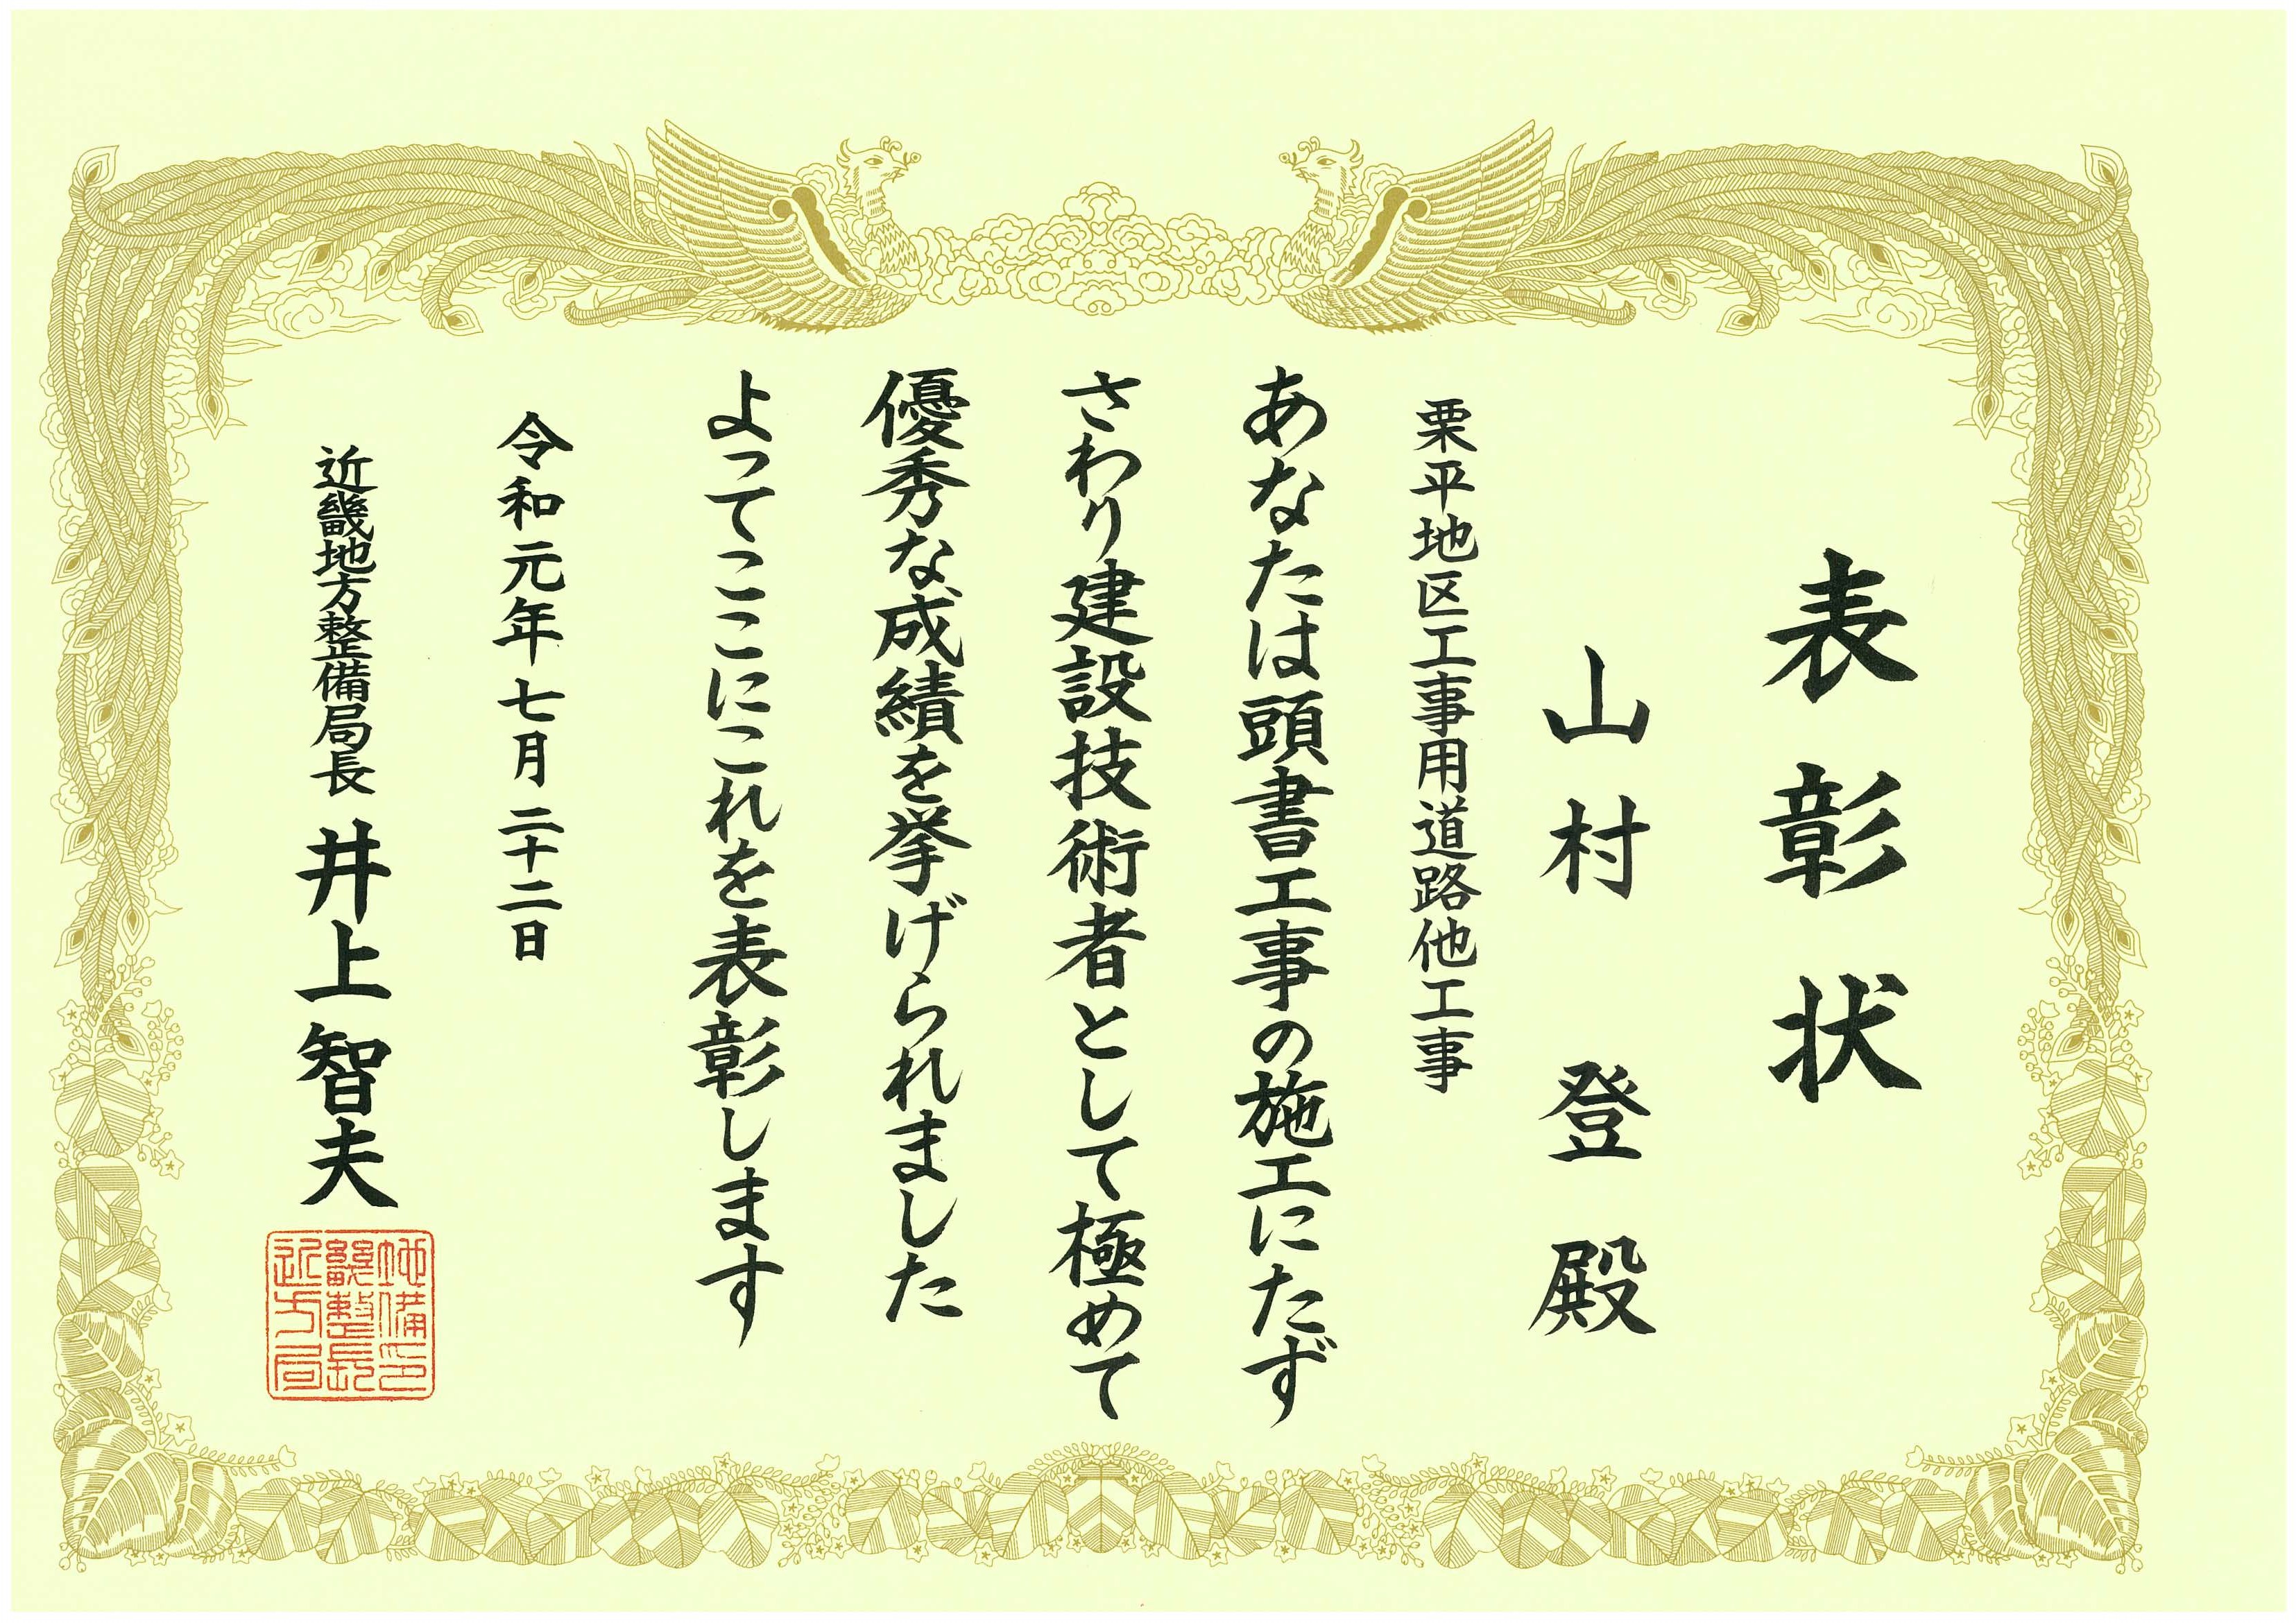 表彰状
山村 登 殿
栗平地区工事用道路他工事
あなたは頭書工事の施工にたず
さわり建設技術者として極めて
優秀な成績を挙げられました
よってここにこれを表彰します
令和元年七月二十二日
近畿地方整備局長 井上智夫
近畿地方整備局長印